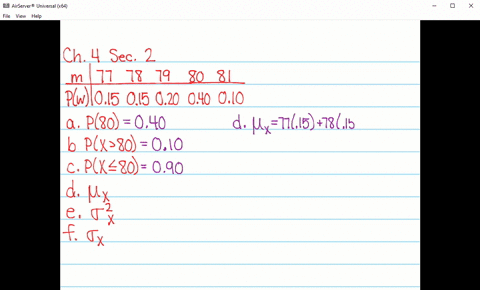 AirServer® Universal (x64)
File View Help
Ch. 4 Sec. 2
m 77 78 79 80 81
P(w) 0.15 0.15 0.20 0.40 0.10
a. P(80) = 0.40
d. μx = 77(.15) + 78(.15
b P(X>80) = 0.10
c. P(X≤80) = 0.90
d. μx
e. σ²x
f. σx